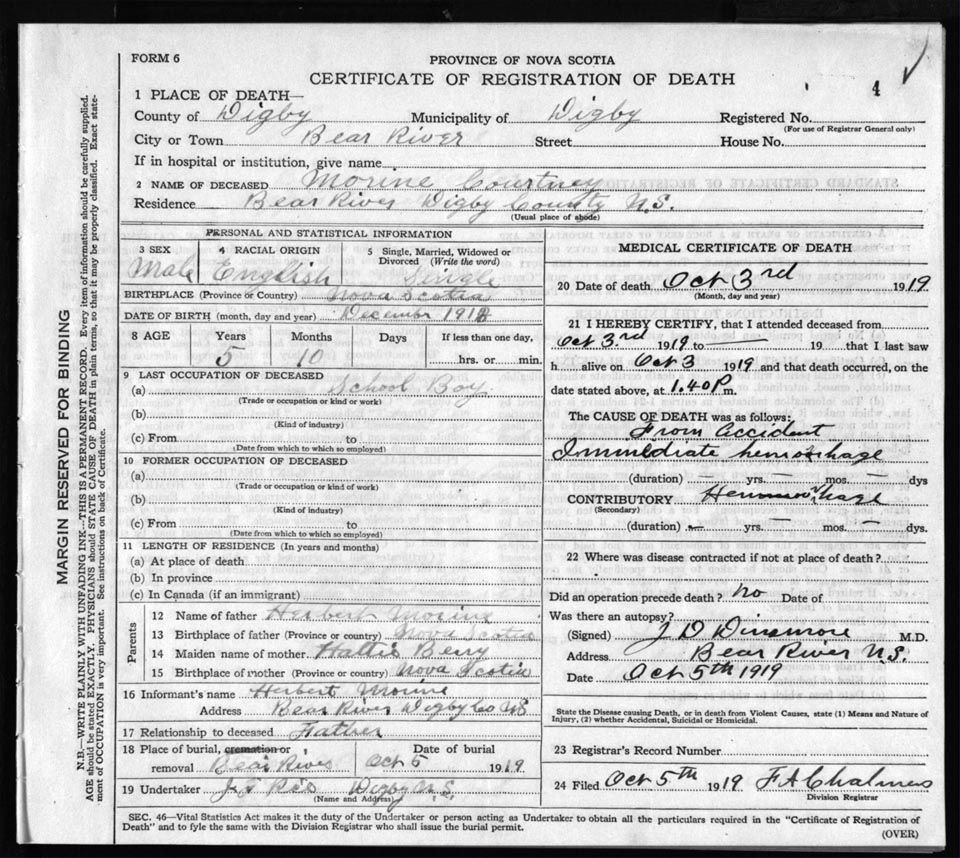 FORM 6
PROVINCE OF NOVA SCOTIA
CERTIFICATE OF REGISTRATION OF DEATH
4
1 PLACE OF DEATH—
County of Digby Municipality of Digby Registered No.
(For use of Registrar General only)
City or Town Bear River Street House No.
If in hospital or institution, give name
2 NAME OF DECEASED Morine Courtney
Residence Bear River Digby County N.S.
(Usual place of abode)
PERSONAL AND STATISTICAL INFORMATION
3 SEX 4 RACIAL ORIGIN 5 Single, Married, Widowed or Divorced (Write the word)
Male English Single
BIRTHPLACE (Province or Country) Nova Scotia
DATE OF BIRTH (month, day and year) December
8 AGE Years Months Days If less than one day,
5 10 hrs. or min.
9 LAST OCCUPATION OF DECEASED
(a) School Boy
(Trade or occupation or kind or work)
(b)
(Kind of industry)
(c) From to
(Date from which to which so employed)
10 FORMER OCCUPATION OF DECEASED
(a)
(Trade or occupation or kind or work)
(b)
(Kind of industry)
(c) From to
(Date from which to which so employed)
11 LENGTH OF RESIDENCE (In years and months)
(a) At place of death
(b) In province
(c) In Canada (if an immigrant)
Parents
12 Name of father Herbert Morine
13 Birthplace of father (Province or country) Nova Scotia
14 Maiden name of mother Hattie Berry
15 Birthplace of mother (Province or country) Nova Scotia
16 Informant's name Herbert Morine
Address Bear River Digby Co NS
17 Relationship to deceased Father
18 Place of burial, cremation or removal Bear River
Date of burial Oct 5 1919
19 Undertaker Digby N.S.
(Name and Address)
MEDICAL CERTIFICATE OF DEATH
20 Date of death Oct 3rd 1919
(Month, day and year)
21 I HEREBY CERTIFY, that I attended deceased from
Oct 3rd 1919 to — 19 that I last saw
h alive on Oct 3 1919 and that death occurred, on the
date stated above, at 1.40 P m.
The CAUSE OF DEATH was as follows:
From accident
Immediate hemorrhage
(duration) — yrs. — mos. — dys
CONTRIBUTORY Hemmorhage
(Secondary)
(duration) — yrs. — mos. — dys.
22 Where was disease contracted if not at place of death?
Did an operation precede death? no Date of
Was there an autopsy?
(Signed) J D Dinsmore M.D.
Address Bear River N.S.
Date Oct 5th 1919
State the Disease causing Death, or in death from Violent Causes, state (1) Means and Nature of
Injury, (2) whether Accidental, Suicidal or Homicidal.
23 Registrar's Record Number
24 Filed Oct 5th 1919 F A Chalmers
Division Registrar
SEC. 46—Vital Statistics Act makes it the duty of the Undertaker or person acting as Undertaker to obtain all the particulars required in the "Certificate of Registration of
Death" and to fyle the same with the Division Registrar who shall issue the burial permit.
(OVER)
MARGIN RESERVED FOR BINDING
N.B.—WRITE PLAINLY WITH UNFADING INK—THIS IS A PERMANENT RECORD. Every item of information should be carefully supplied.
AGE should be stated EXACTLY. PHYSICIANS should STATE CAUSE OF DEATH in plain terms, so that it may be properly classified. Exact state-
ment of OCCUPATION is very important. See instructions on back of Certificate.